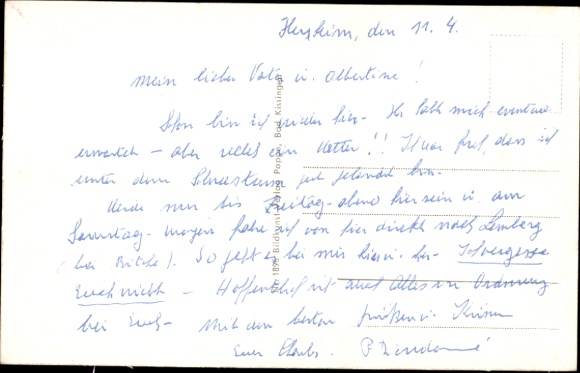 Herxheim, den 11. 4.
Mein lieber Vater u. Albertine!
Schon bin ich wieder hier - Ihr habt mich eventuell
erwartet - aber welch ein Wetter!! War froh, dass ich
unter dem gut gelandet bin.
Werde nur bis Freitag-abend hier sein u. am
Samstag-morgen fahre ich von hier direkt nach Lemberg
(bei Bitche). So geht es bei mir hin u. her - Ich vergesse
Euch nicht - Hoffentlich ist auch Alles in Ordnung
bei Euch - Mit den besten Grüßen u. Küssen
Euer
Nr. 1899 Bildkunst-Verlag Popp, Bad Kissingen